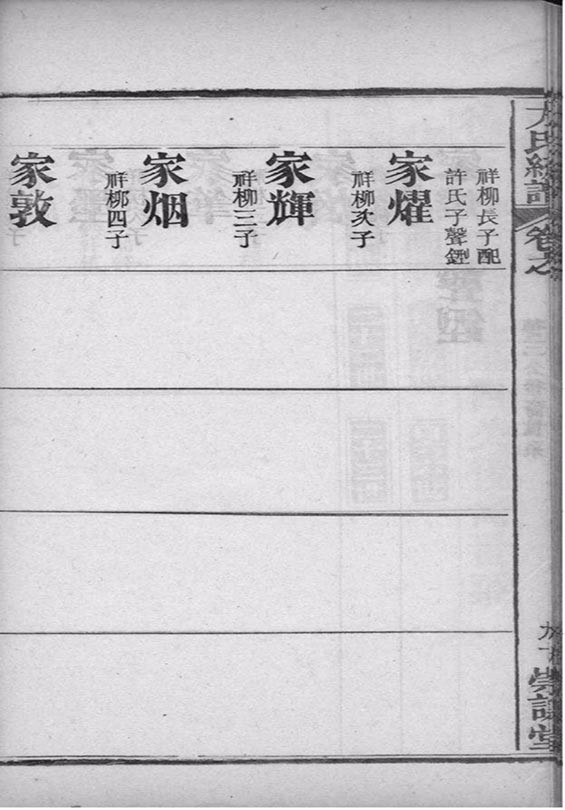 氏總譜 卷之
祥柳長子配
許氏子聲
家燿
祥柳次子
家輝
祥柳三子
家烟
祥柳四子
家敦